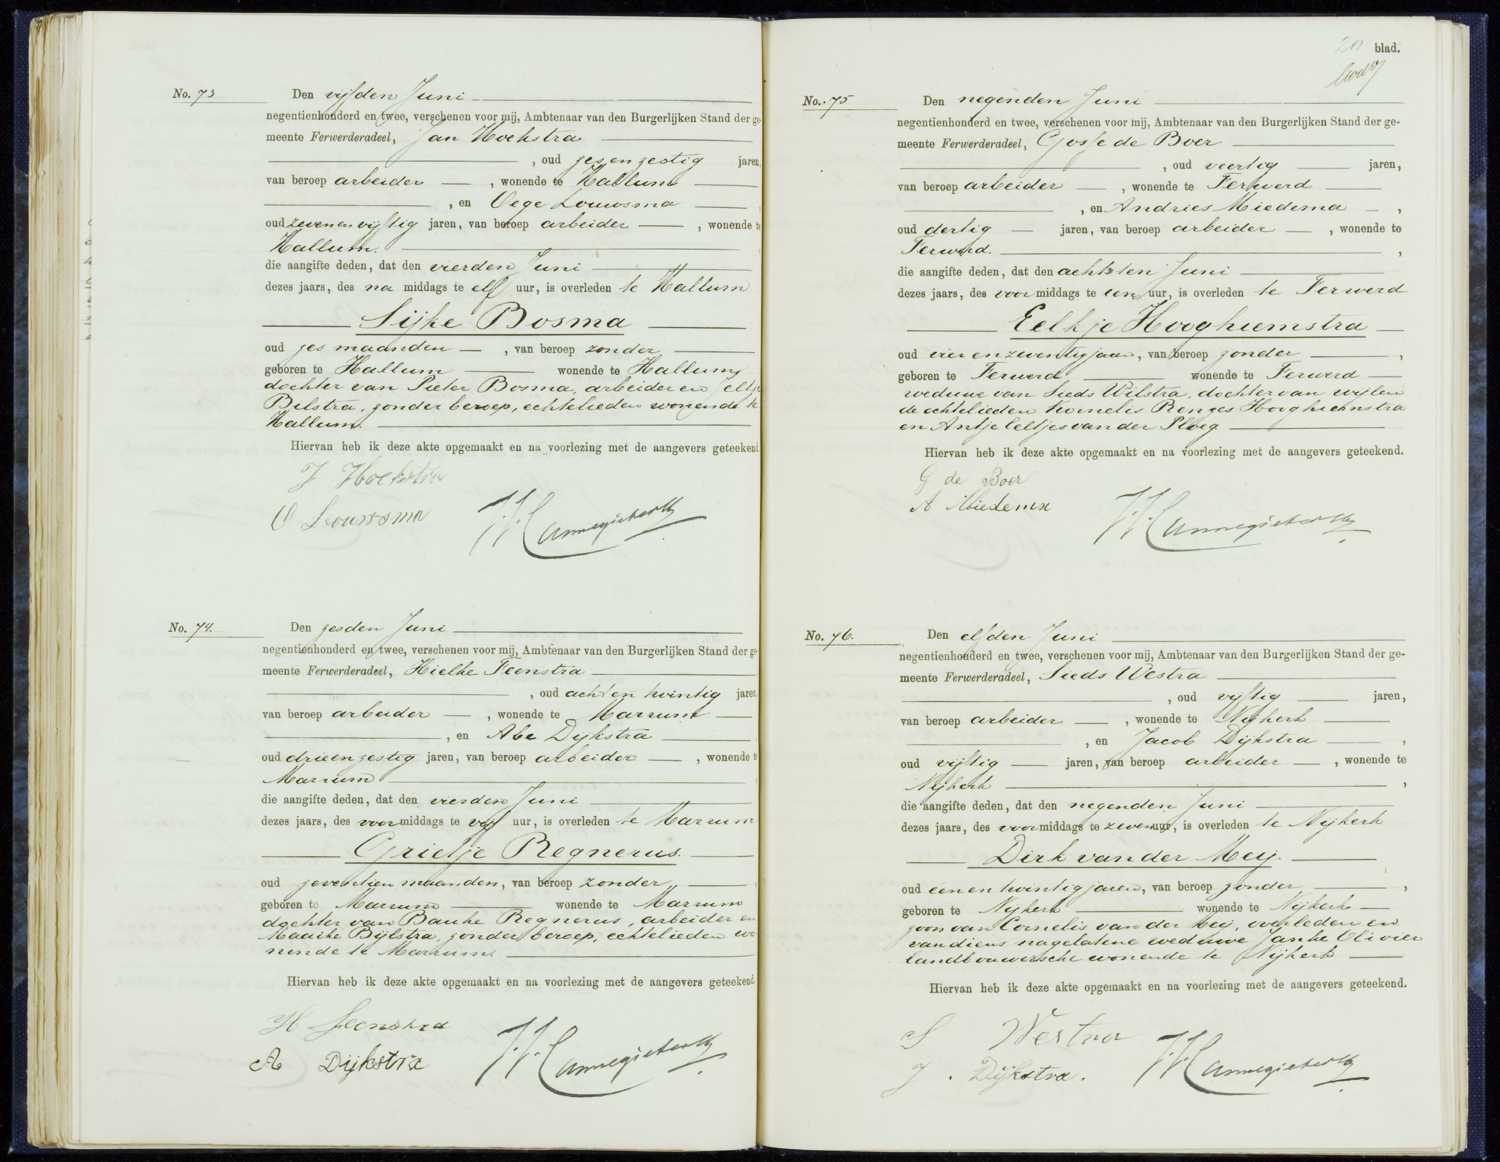 No. 73 Den vijfden Juni
negentienhonderd en twee, verschenen voor mij, Ambtenaar van den Burgerlijken Stand der ge-
meente Ferwerderadeel, Jan Hoekstra
, oud zesenzestig jaren,
van beroep arbeider , wonende te Hallum
, en Oege Louwsma
oud zevenenvijftig jaren, van beroep arbeider , wonende te
Hallum.
die aangifte deden, dat den vierden Juni
dezes jaars, des na middags te elf uur, is overleden te Hallum
Sijke Bosma
oud zes maanden , van beroep zonder
geboren te Hallum wonende te Hallum,
dochter van Pieter Bosma, arbeider en Jeltje
Bilstra, zonder beroep, echtelieden wonende te
Hallum.
Hiervan heb ik deze akte opgemaakt en na voorlezing met de aangevers geteekend.
J Hoekstra
O Louwsma

No. 74. Den zesden Juni
negentienhonderd en twee, verschenen voor mij, Ambtenaar van den Burgerlijken Stand der ge-
meente Ferwerderadeel, Hielke Feenstra
, oud achtentwintig jaren,
van beroep arbeider , wonende te Marrum
, en Abe Dijkstra
oud drieenzestig jaren, van beroep arbeider , wonende te
Marrum
die aangifte deden, dat den vierden Juni
dezes jaars, des voormiddags te vijf uur, is overleden te Marrum
Grietje Regnerus.
oud zeventien maanden, van beroep zonder
geboren te Marrum wonende te Marrum
dochter van Bauke Regnerus, arbeider en
Maaike Bijlstra, zonder beroep, echtelieden wo
nende te Marrum.
Hiervan heb ik deze akte opgemaakt en na voorlezing met de aangevers geteekend.
H Feenstra
A Dijkstra

20 blad.
No. 75 Den negenden Juni
negentienhonderd en twee, verschenen voor mij, Ambtenaar van den Burgerlijken Stand der ge-
meente Ferwerderadeel, Gosse de Boer
, oud veertig jaren,
van beroep arbeider , wonende te Ferwerd
, en Andries Miedema ,
oud dertig jaren, van beroep arbeider , wonende te
Ferwerd. ,
die aangifte deden, dat den achtsten Juni
dezes jaars, des voormiddags te een uur, is overleden te Ferwerd
Eelkje Hooghiemstra
oud vierenzeventig jaar, van beroep zonder ,
geboren te Ferwerd wonende te Ferwerd
weduwe van Sieds Wilstra, dochter van wijlen
de echtelieden Kornelis Ringes Hooghiemstra
en Antje Eeltjes van der Ploeg
Hiervan heb ik deze akte opgemaakt en na voorlezing met de aangevers geteekend.
G de Boer
A Miedema

No. 76. Den elfden Juni
negentienhonderd en twee, verschenen voor mij, Ambtenaar van den Burgerlijken Stand der ge-
meente Ferwerderadeel, Sieds Westra
, oud vijftig jaren,
van beroep arbeider , wonende te Nijkerk
, en Jacob Dijkstra ,
oud vijftig jaren, van beroep arbeider , wonende te
Nijkerk ,
die aangifte deden, dat den negenden Juni
dezes jaars, des voormiddags te zeven uur, is overleden te Nijkerk
Dirk van der Meij.
oud eenentwintig jaren, van beroep zonder ,
geboren te Nijkerk wonende te Nijkerk
zoon van Cornelis van der Meij, overleden en
van diens nagelatene weduwe Janke Olivier
landbouwersche wonende te Nijkerk
Hiervan heb ik deze akte opgemaakt en na voorlezing met de aangevers geteekend.
S Westra
J. Dijkstra.